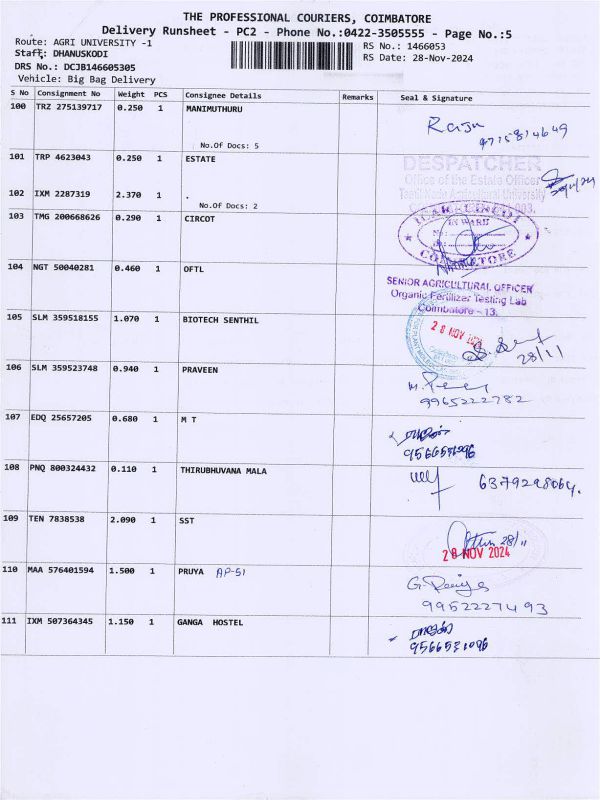 THE PROFESSIONAL COURIERS, COIMBATORE
Delivery Runsheet - PC2 - Phone No.:0422-3505555 - Page No.:5
Route: AGRI UNIVERSITY -1
RS No.: 1466053
Staff: DHANUSKODI
RS Date: 28-Nov-2024
DRS No.: DCJB146605305
Vehicle: Big Bag Delivery
S No Consignment No Weight PCS Consignee Details Remarks Seal & Signature
100 TRZ 275139717 0.250 1 MANIMUTHURU
Raju
No.Of Docs: 5
101 TRP 4623043 0.250 1 ESTATE
DESPATCHER
Office of the Estate Officer
Tamil Nadu Agricultural University
102 IXM 2287319 2.370 1 .
No.Of Docs: 2
103 TMG 200668626 0.290 1 CIRCOT
INWARD
COIMBATORE
104 NGT 50040281 0.460 1 OFTL
SENIOR AGRICULTURAL OFFICER
Organic Fertilizer Testing Lab
Coimbatore - 13.
105 SLM 359518155 1.070 1 BIOTECH SENTHIL
28 NOV
28/11
106 SLM 359523748 0.940 1 PRAVEEN
9965222782
107 EDQ 25657205 0.680 1 M T
108 PNQ 800324432 0.110 1 THIRUBHUVANA MALA
6379298064.
109 TEN 7838538 2.090 1 SST
28/11
28 NOV 2024
110 MAA 576401594 1.500 1 PRUYA AP-51
G. Priya
9952227493
111 IXM 507364345 1.150 1 GANGA HOSTEL